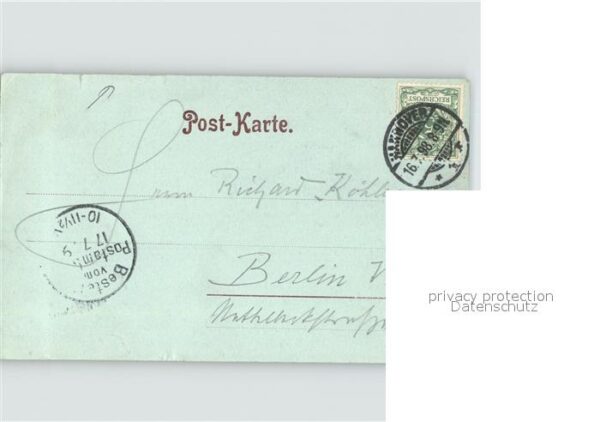 REICHSPOST
HANNOVER
16.7.98.8-9N.
Post-Karte.
Herrn Richard Köhl
10-11½V.
17.7.9
Postamt
vom
Beste
Berlin W
privacy protection
Datenschutz